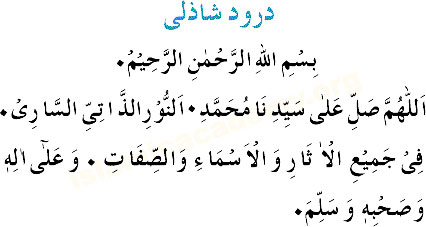 درود شاذلی
بِسْمِ اللهِ الرَّحْمٰنِ الرَّحِيْمُ۰
اَللّٰهُمَّ صَلِّ عَلٰى سَيِّدِ نَا مُحَمَّدِ۰ اَلنُّوْرِ الذَّ اتِىِّ السَّارِىْ۰
فِىْ جَمِيْعِ الْاٰ ثَارِ وَ الْاَ سْمَاءِ وَالصِّفَاتِ ۰ وَ عَلٰٓى اٰلِهٖ
وَ صَحْبِهٖ وَ سَلِّمَ۰